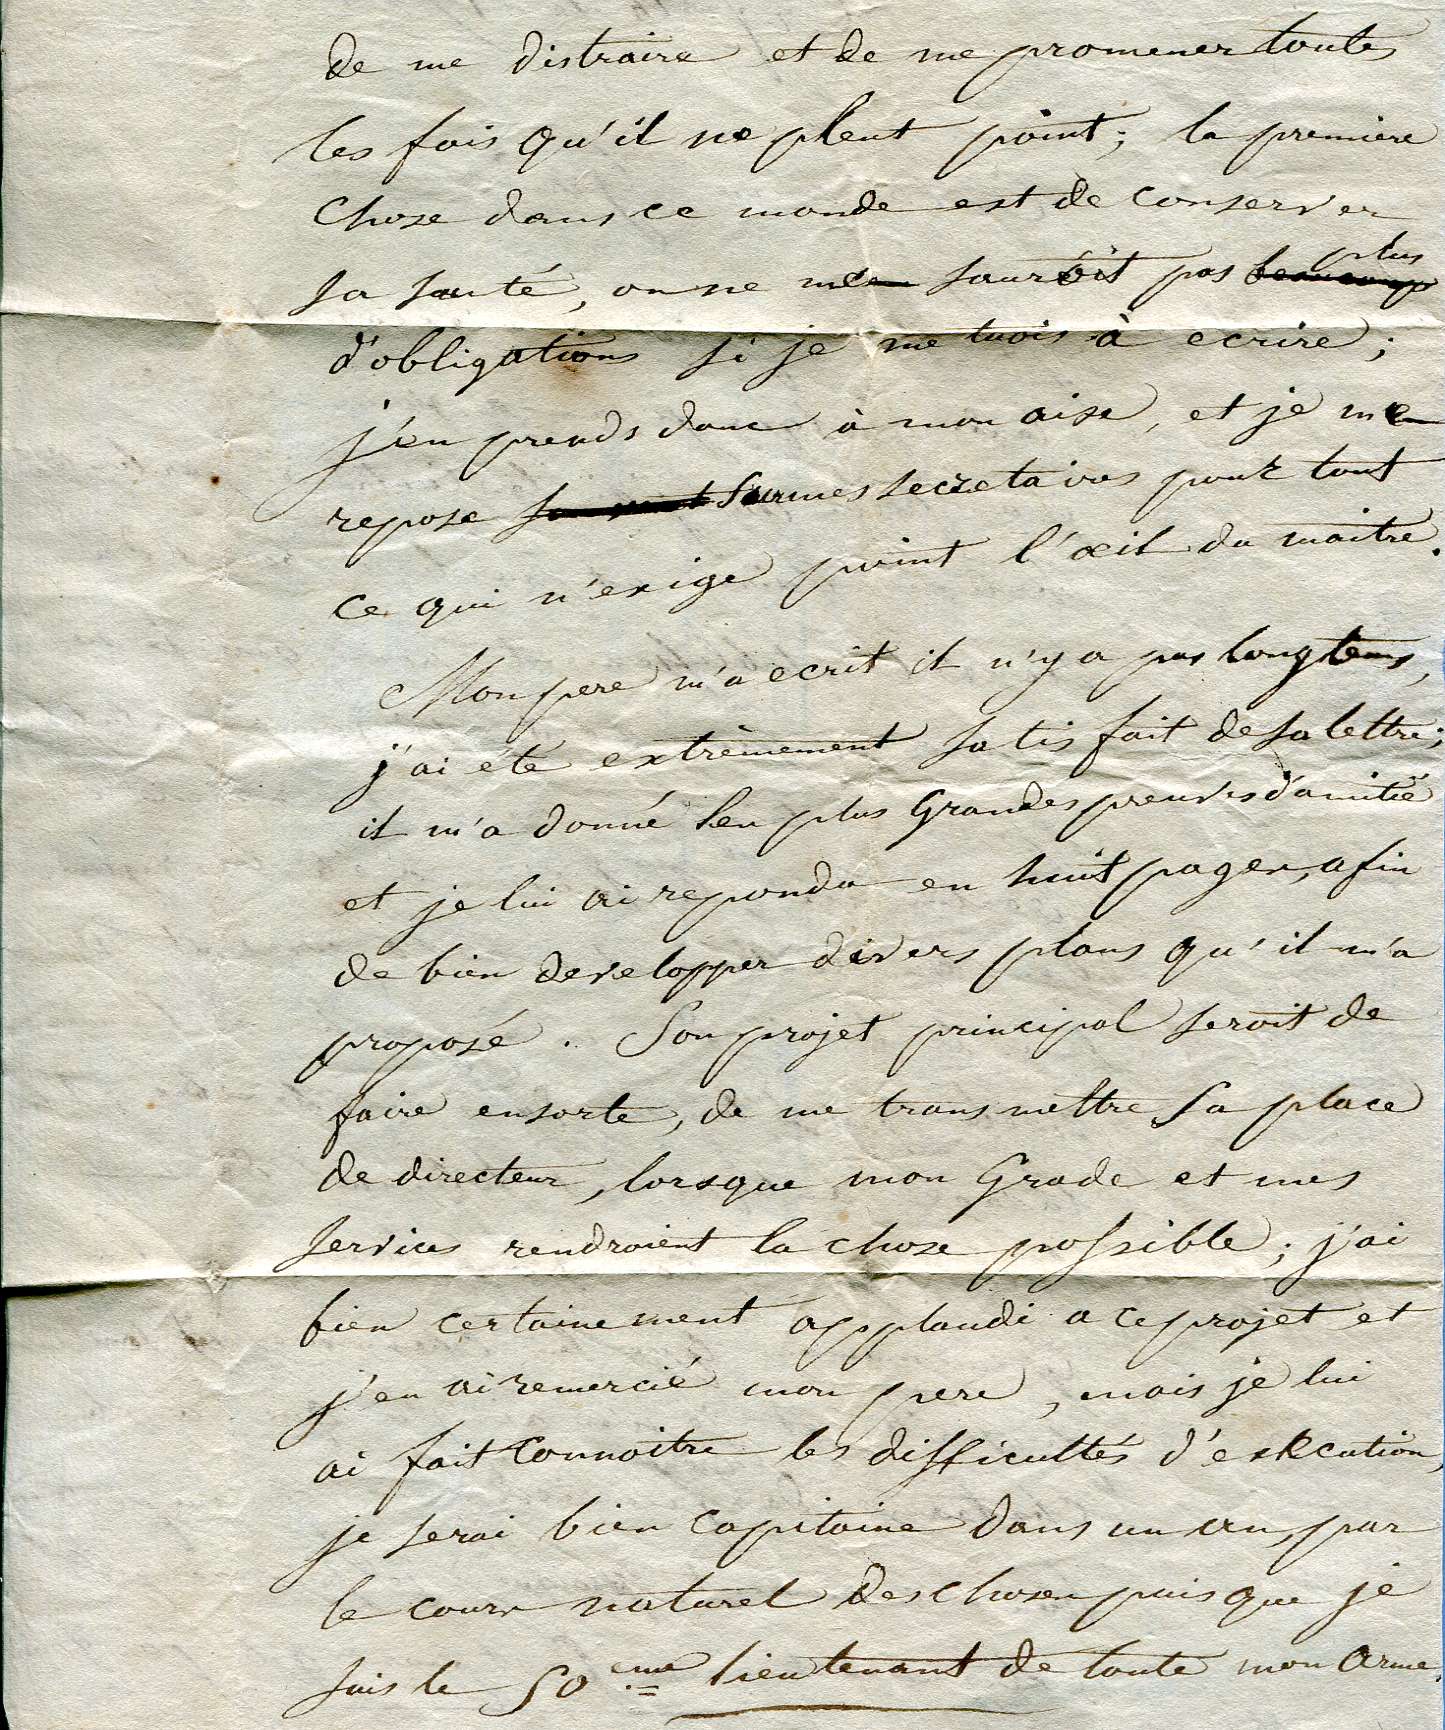 de me distraire et de me promener toutes
les fois qu'il ne pleut point; la premiere
chose dans ce monde est de conserver
sa santé, on ne m'en sauroit pas plus
d'obligations si je me tuois à ecrire;
j'en prends donc à mon aise, et je me
repose sur mes secretaires pour tout
ce qui n'exige point l'œil du maitre.
Mon pere m'a ecrit il n'y a pas longtems,
j'ai été extrèmement satisfait de sa lettre;
il m'a donné les plus Grandes preuves d'amitié
et je lui ai repondu en huit pages, afin
de bien developper divers plans qu'il m'a
proposé. Son projet principal seroit de
faire ensorte, de me transmettre sa place
de directeur, lorsque mon Grade et mes
services rendroient la chose possible; j'ai
bien certainement applaudi a ce projet et
j'en ai remercié mon pere, mais je lui
ai fait connoitre les difficultés d'exécution,
je serai bien capitaine dans un an, par
le cours naturel des choses puisque je
suis le 50eme lieutenant de toute mon arme.